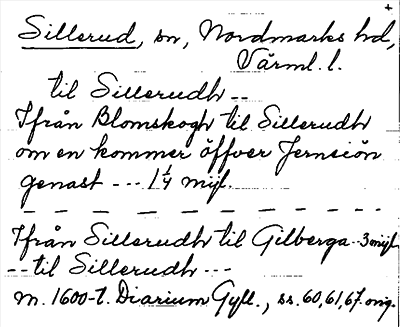 Sillerud, sn, Nordmarks hd,
Värml. l.
til Sillerudh --
Ifrån Blomskogh til Sillerudh
om en kommer öffver Jernsiön
genast --- 1 1/4 mijl.
Ifrån Sillerudh til Gilberga -- 3 mijl
-- til Sillerudh ---
m. 1600-t. Diarium Gyll., ss. 60, 61, 67. orig.